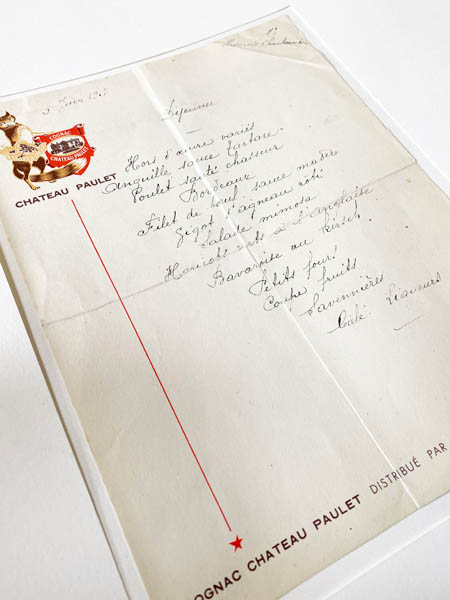 Juin
Déjeuner
COGNAC
CHATEAU PAULET
CHATEAU PAULET
Hors d'œuvre variés
Anguille sauce tartare.
Poulet sauté chasseur
Bordeaux
Filet de bœuf sauce madère
Gigot d'agneau rôti
Salade mimosa
Haricots verts à l'anglaise
Bavaroise au kirsch.
Petits fours
Coupe fruits
Savennières
Café. Liqueurs
COGNAC CHATEAU PAULET DISTRIBUÉ PAR